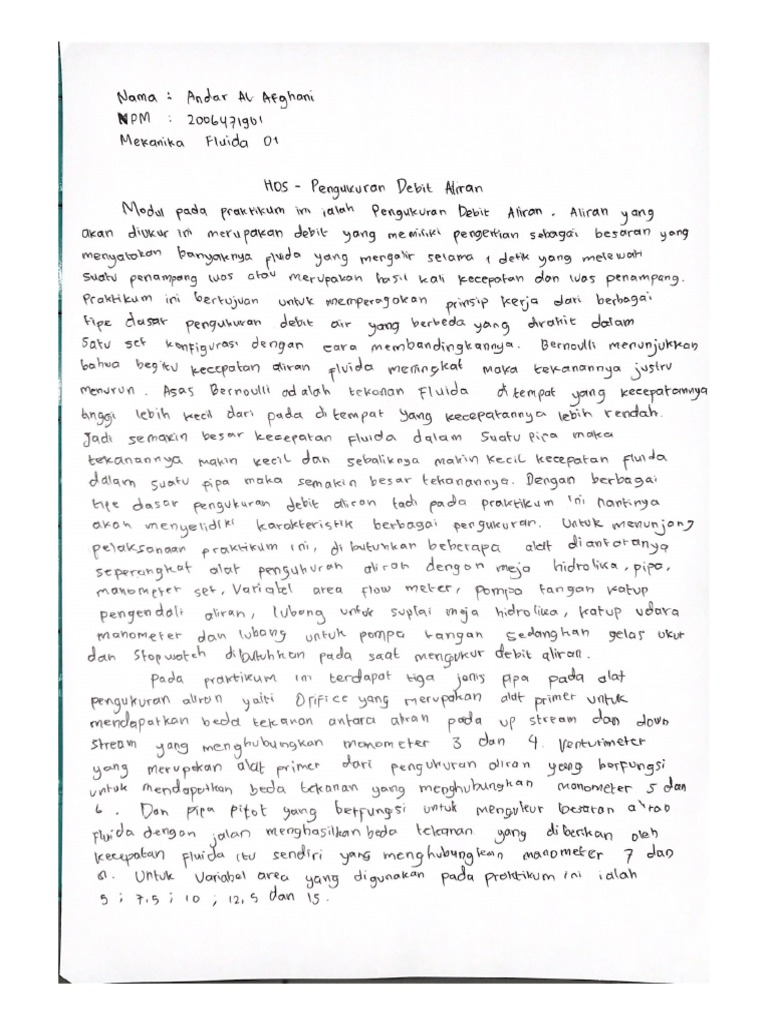 Nama : Andar Al Afghani
NPM : 2006471901
Mekanika Fluida 01
H05 - Pengukuran Debit Aliran
Modul pada praktikum ini ialah Pengukuran Debit Aliran. Aliran yang
akan diukur ini merupakan debit yang memiliki pengertian sebagai besaran yang
menyatakan banyaknya fluida yang mengalir selama 1 detik yang melewati
suatu penampang luas atau merupakan hasil kali kecepatan dan luas penampang.
Praktikum ini bertujuan untuk memperagakan prinsip kerja dari berbagai
tipe dasar pengukuran debit air yang berbeda yang dirakit dalam
satu set konfigurasi dengan cara membandingkannya. Bernoulli menunjukkan
bahwa begitu kecepatan aliran fluida meningkat maka tekanannya justru
menurun. Asas Bernoulli adalah tekanan Fluida di tempat yang kecepatannya
tinggi lebih kecil dari pada di tempat yang kecepatannya lebih rendah.
Jadi semakin besar kecepatan fluida dalam suatu pipa maka
tekanannya makin kecil dan sebaliknya makin kecil kecepatan fluida
dalam suatu pipa maka semakin besar tekanannya. Dengan berbagai
tipe dasar pengukuran debit aliran tadi pada praktikum ini nantinya
akan menyelidiki karakteristik berbagai pengukuran. Untuk menunjang
pelaksanaan praktikum ini, dibutuhkan beberapa alat diantaranya
seperangkat alat pengukuran aliran dengan meja hidrolika, pipa,
manometer set, Variabel area flow meter, pompa tangan katup
pengendali aliran, lubang untuk suplai meja hidrolika, katup udara
manometer dan lubang untuk pompa tangan sedangkan gelas ukur
dan Stopwatch dibutuhkan pada saat mengukur debit aliran.
Pada praktikum ini terdapat tiga jenis pipa pada alat
pengukuran aliran yaiti Orifice yang merupakan alat primer untuk
mendapatkan beda tekanan antara aliran pada up stream dan down
stream yang menghubungkan manometer 3 dan 4. Venturimeter
yang merupakan alat primer dari pengukuran aliran yang berfungsi
untuk mendapatkan beda tekanan yang menghubungkan manometer 5 dan
6. Dan pipa pitot yang berfungsi untuk mengukur besaran aliran
fluida dengan jalan menghasilkan beda tekanan yang diberikan oleh
kecepatan fluida itu sendiri yang menghubungkan manometer 7 dan
8. Untuk Variabel area yang digunakan pada praktikum ini ialah
5 ; 7,5 ; 10 ; 12,5 dan 15.